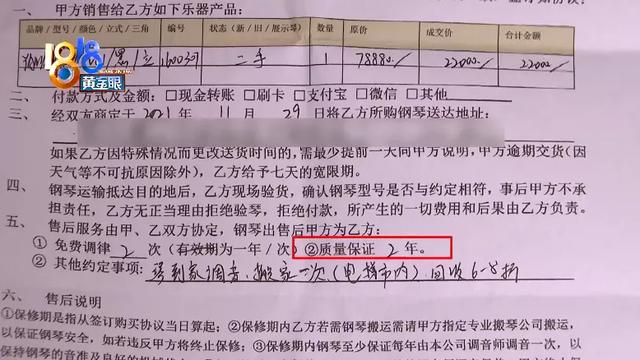 一、 甲方销售给乙方如下乐器产品：
品牌/型号/颜色/立式/三角 编号 状态（新/旧/展示琴） 数量 原价 成交价 合计金额
黑/立 1600309 二手 1 78880./ 22000./ 22000./
1818
黄金眼
二、 付款方式及金额：□现金转账 □刷卡 □支付宝 □微信 □其他
三、 经双方商定于2021年11月29日将乙方所购钢琴送达地址：
如果乙方因特殊情况而更改送货时间的，需最少提前一天向甲方说明，甲方逾期交货（因
天气等不可抗原因除外），乙方给予七天的宽限期。
四、 钢琴运输抵达目的地后，乙方现场验货，确认钢琴型号是否与约定相符，事后甲方不承
担责任，乙方无正当理由拒绝验琴，拒绝付款，所产生的一切费用和后果由乙方负责。
五、 售后服务由甲、乙双方协定，钢琴出售后甲方为乙方：
① 免费调律2次（有效期为一年/次）②质量保证2年。
② 其他约定事项：琴到家调音、搬家一次（电梯市内）回收6-8折
六、 售后说明
①保修期是指从签订购买协议当日算起；②保修期内乙方若需钢琴搬运需请甲方指定专业搬琴公司搬运，
以保证钢琴安全，如若违反甲方将终止保修；③保修期内钢琴至少保证每年由本公司调音师调音一次，以
保持钢琴的音准及良好的机械状态